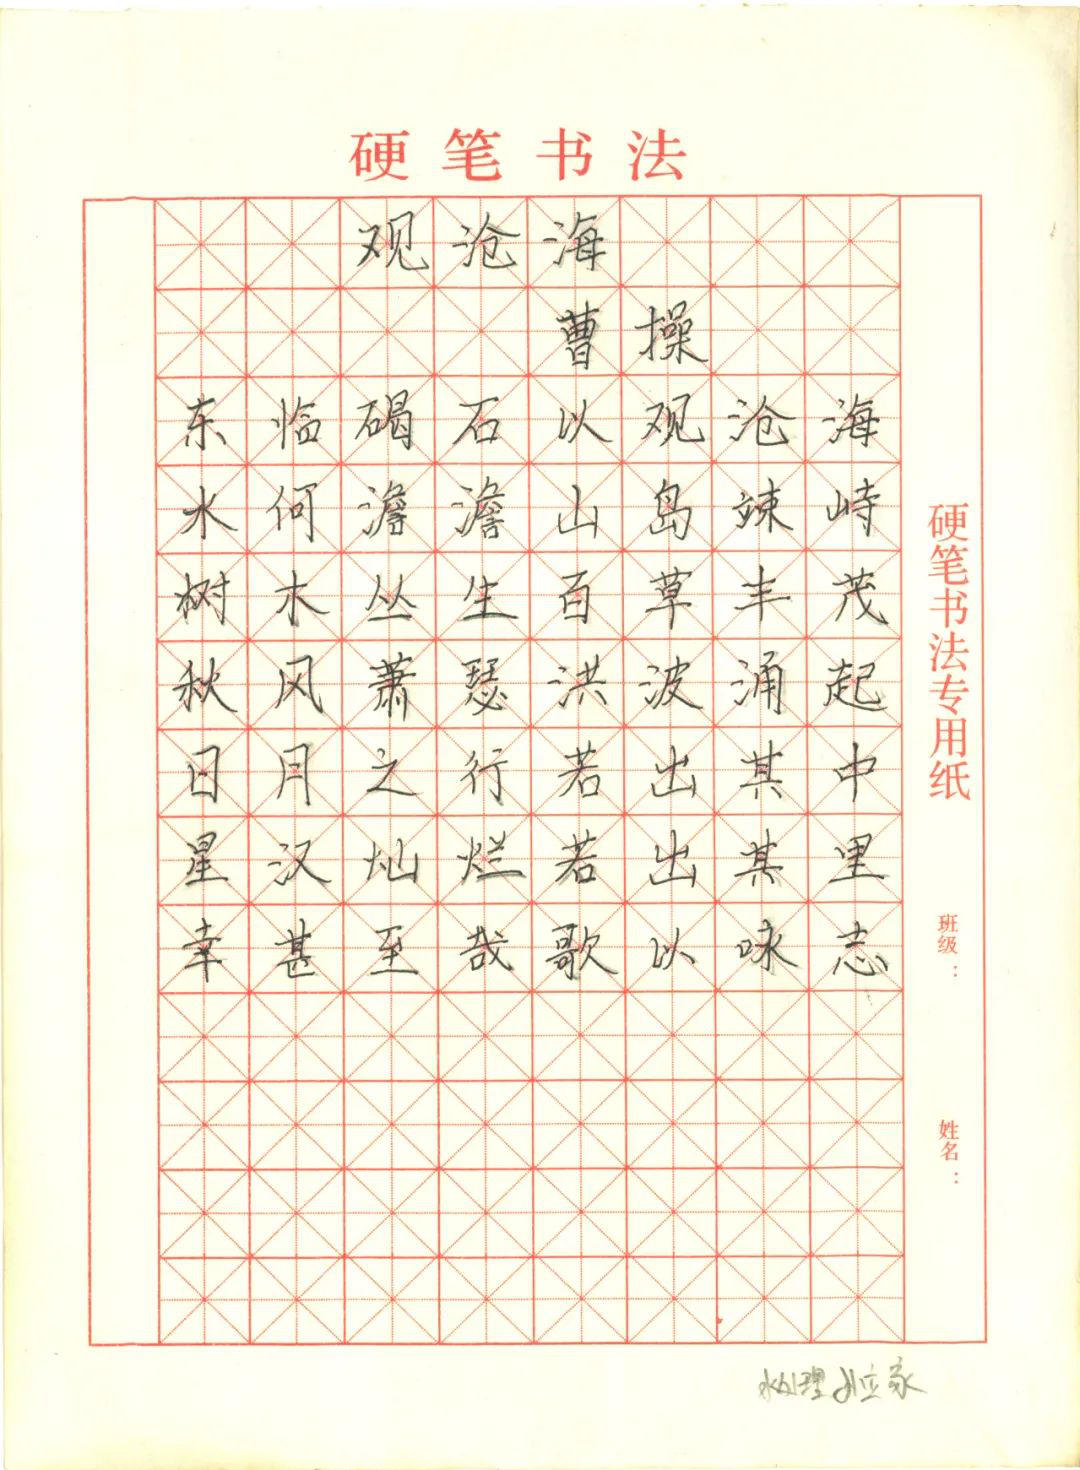 硬笔书法
观沧海
曹操
东临碣石以观沧海
水何澹澹山岛竦峙
树木丛生百草丰茂
秋风萧瑟洪波涌起
日月之行若出其中
星汉灿烂若出其里
幸甚至哉歌以咏志
硬笔书法专用纸
班级：
姓名：